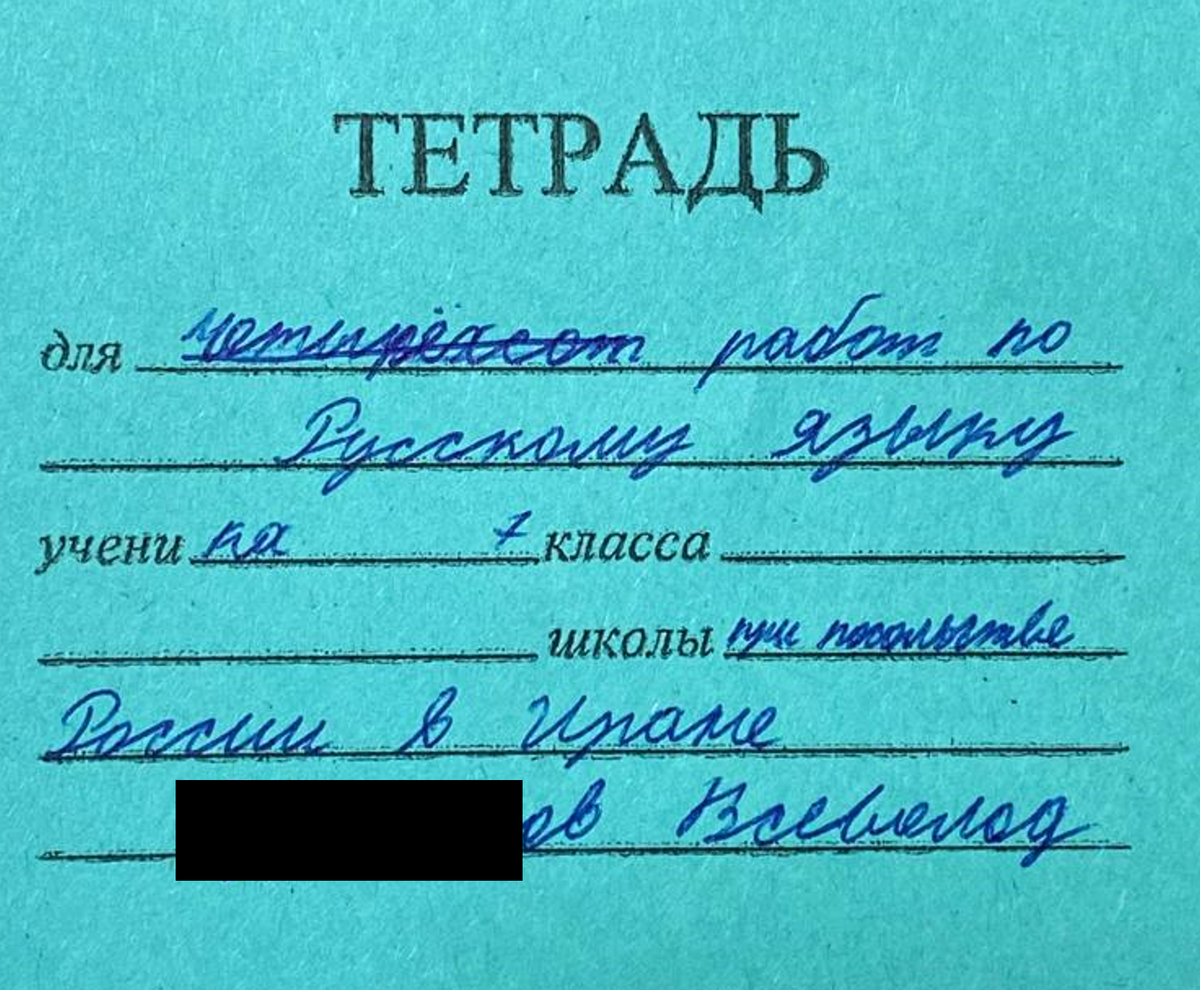 ТЕТРАДЬ
для четырёхсот работ по
Русскому языку
ученика 7 класса
школы при посольстве
России в Иране
ов Всеволод